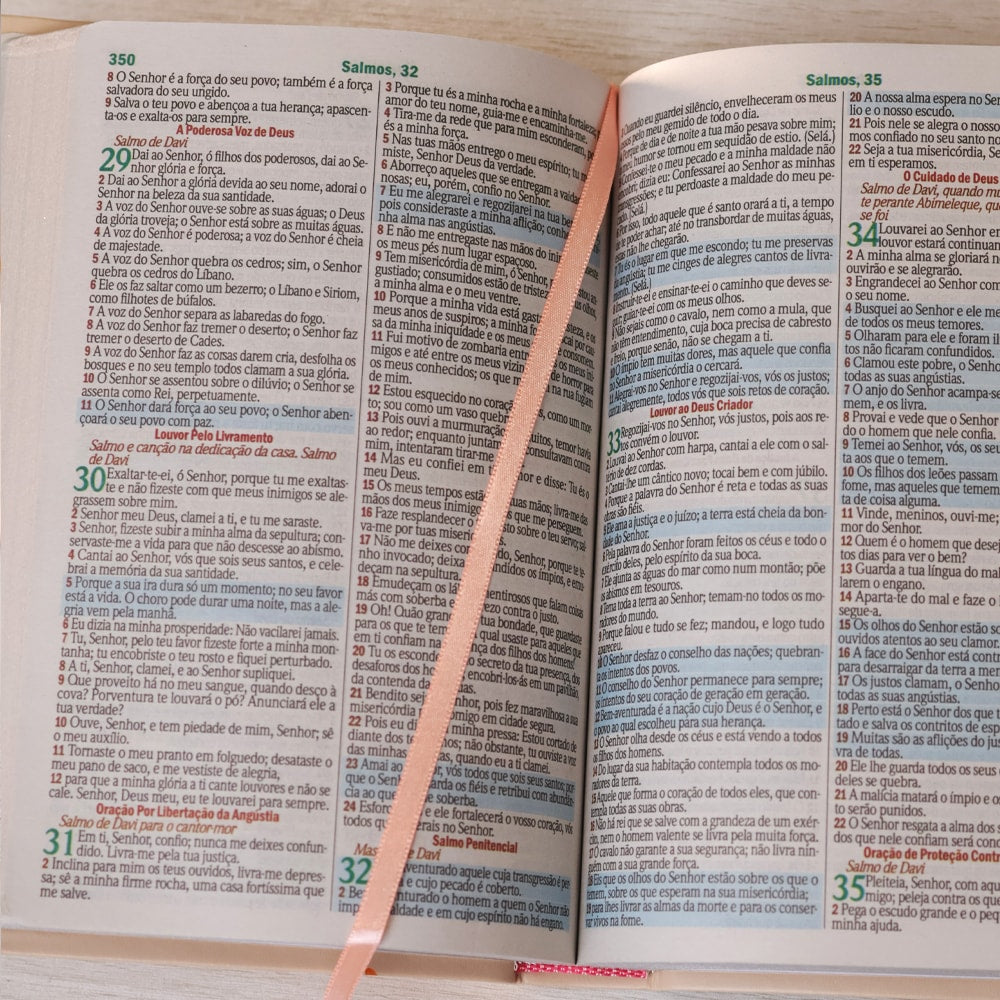 350
Salmos, 32
8 O Senhor é a força do seu povo; também é a força
salvadora do seu ungido.
9 Salva o teu povo e abençoa a tua herança; apascen-
ta-os e exalta-os para sempre.
A Poderosa Voz de Deus
Salmo de Davi
29 Dai ao Senhor, ó filhos dos poderosos, dai ao Se-
nhor glória e força.
2 Dai ao Senhor a glória devida ao seu nome, adorai o
Senhor na beleza da sua santidade.
3 A voz do Senhor ouve-se sobre as suas águas; o Deus
da glória troveja; o Senhor está sobre as muitas águas.
4 A voz do Senhor é poderosa; a voz do Senhor é cheia
de majestade.
5 A voz do Senhor quebra os cedros; sim, o Senhor
quebra os cedros do Líbano.
6 Ele os faz saltar como um bezerro; o Líbano e Siriom,
como filhotes de búfalos.
7 A voz do Senhor separa as labaredas do fogo.
8 A voz do Senhor faz tremer o deserto; o Senhor faz
tremer o deserto de Cades.
9 A voz do Senhor faz as corsas darem cria, desfolha os
bosques e no seu templo todos clamam a sua glória.
10 O Senhor se assentou sobre o dilúvio; o Senhor se
assenta como Rei, perpetuamente.
11 O Senhor dará força ao seu povo; o Senhor aben-
çoará o seu povo com paz.
Louvor Pelo Livramento
Salmo e canção na dedicação da casa. Salmo
de Davi
30 Exaltar-te-ei, ó Senhor, porque tu me exaltas-
te e não fizeste com que meus inimigos se ale-
grassem sobre mim.
2 Senhor meu Deus, clamei a ti, e tu me saraste.
3 Senhor, fizeste subir a minha alma da sepultura; con-
servaste-me a vida para que não descesse ao abismo.
4 Cantai ao Senhor, vós que sois seus santos, e cele-
brai a memória da sua santidade.
5 Porque a sua ira dura só um momento; no seu favor
está a vida. O choro pode durar uma noite, mas a ale-
gria vem pela manhã.
6 Eu dizia na minha prosperidade: Não vacilarei jamais.
7 Tu, Senhor, pelo teu favor fizeste forte a minha mon-
tanha; tu encobriste o teu rosto e fiquei perturbado.
8 A ti, Senhor, clamei, e ao Senhor supliquei.
9 Que proveito há no meu sangue, quando desço à
cova? Porventura te louvará o pó? Anunciará ele a
tua verdade?
10 Ouve, Senhor, e tem piedade de mim, Senhor; sê
o meu auxílio.
11 Tornaste o meu pranto em folguedo; desataste o
meu pano de saco, e me vestiste de alegria,
12 para que a minha glória a ti cante louvores e não se
cale. Senhor, Deus meu, eu te louvarei para sempre.
Oração Por Libertação da Angústia
Salmo de Davi para o cantor-mor
31 Em ti, Senhor, confio; nunca me deixes confun-
dido. Livra-me pela tua justiça.
2 Inclina para mim os teus ouvidos, livra-me depres-
sa; sê a minha firme rocha, uma casa fortíssima que
me salve.
3 Porque tu és a minha rocha e a minha fortaleza;
amor do teu nome, guia-me e encaminha-me.
4 Tira-me da rede que para mim esconderam,
és a minha força.
5 Nas tuas mãos entrego o meu espírito; tu
miste, Senhor Deus da verdade.
6 Aborreço aqueles que se entregam a
nosas; eu, porém, confio no Senhor.
7 Eu me alegrarei e regozijarei na tua
pois consideraste a minha aflição;
nha alma nas angústias.
8 E não me entregaste nas mãos do
os meus pés num lugar espaçoso.
9 Tem misericórdia de mim, ó Senhor,
gustiado; consumidos estão de
a minha alma e o meu ventre.
10 Porque a minha vida está
meus anos de suspiros; a minha
sa da minha iniquidade e os
11 Fui motivo de zombaria
migos e até entre os meus
os meus conhecidos; os que
de mim.
12 Estou esquecido no coração
to; sou como um vaso
13 Pois ouvi a murmuração
ao redor; enquanto
mim, intentaram
14 Mas eu confiei em e disse: Tu és o
meu Deus.
15 Os meus tempos estão tuas mãos; livra-me das
mãos dos meus que me perseguem.
16 Faze resplandecer rosto sobre o teu servo;
va-me por tuas
17 Não me deixes Senhor, porque te
nho invocado; deixa os ímpios, e
deçam na sepultura.
18 Emudeçam os mentirosos que falam coisas
más com soberba e contra o justo.
19 Oh! Quão tua bondade, que guardaste
para os que te qual usaste para aqueles
em ti confiam na dos filhos dos homens!
20 Tu os secreto da tua presença, dos
desaforos dos encobri-los-ás em um pavilhão,
da contenda
21 Bendito Senhor, pois fez maravilhosa a sua
misericórdia comigo em cidade segura.
22 Pois eu minha pressa: Estou cortado de
diante dos não obstante, tu ouviste a voz
das minhas quando eu a ti clamei.
23 Amai ao vós todos que sois seus santos; por-
que o guarda os fiéis e retribui com abundân-
cia ao que soberba.
24 e ele fortalecerá o vosso coração, vós
todos no Senhor.
Salmo Penitencial
de Davi
32 aquele cuja transgressão é per-
e cujo pecado é coberto.
2 o homem a quem o Senhor não
maldade e em cujo espírito não há engano.
Salmos, 35
Quando eu guardei silêncio, envelheceram os meus
pelo meu gemido de todo o dia.
de dia e de noite a tua mão pesava sobre mim;
meu humor se tornou em sequidão de estio. (Selá.)
Confessei-te o meu pecado e a minha maldade não
dizia eu: Confessarei ao Senhor as minhas
transgressões; e tu perdoaste a maldade do meu pe-
(Selá.)
isso, todo aquele que é santo orará a ti, a tempo
te poder achar; até no transbordar de muitas águas,
não lhe chegarão.
Tu és o lugar em que me escondo; tu me preservas
angústia; tu me cinges de alegres cantos de livra-
mento. (Selá.)
Instruir-te-ei e ensinar-te-ei o caminho que deves se-
guir; guiar-te-ei com os meus olhos.
Não sejais como o cavalo, nem como a mula, que
não têm entendimento, cuja boca precisa de cabresto
e freio, porque senão, não se chegam a ti.
O ímpio tem muitas dores, mas aquele que confia
no Senhor a misericórdia o cercará.
11 Alegrai-vos no Senhor e regozijai-vos, vós os justos;
cantai alegremente, todos vós que sois retos de coração.
Louvor ao Deus Criador
33 Regozijai-vos no Senhor, vós justos, pois aos re-
tos convém o louvor.
2 Louvai ao Senhor com harpa, cantai a ele com o sal-
tério de dez cordas.
3 Cantai-lhe um cântico novo; tocai bem e com júbilo.
4 Porque a palavra do Senhor é reta e todas as suas
obras são fiéis.
5 Ele ama a justiça e o juízo; a terra está cheia da bon-
dade do Senhor.
6 Pela palavra do Senhor foram feitos os céus e todo o
exército deles, pelo espírito da sua boca.
7 Ele ajunta as águas do mar como num montão; põe
os abismos em tesouros.
8 Tema toda a terra ao Senhor; temam-no todos os mo-
radores do mundo.
9 Porque falou e tudo se fez; mandou, e logo tudo
apareceu.
10 O Senhor desfaz o conselho das nações; quebran-
ta os intentos dos povos.
11 O conselho do Senhor permanece para sempre;
os intentos do seu coração de geração em geração.
12 Bem-aventurada é a nação cujo Deus é o Senhor, e
o povo ao qual escolheu para sua herança.
13 O Senhor olha desde os céus e está vendo a todos
os filhos dos homens.
14 Do lugar da sua habitação contempla todos os mo-
radores da terra.
15 Aquele que forma o coração de todos eles, que con-
templa todas as suas obras.
16 Não há rei que se salve com a grandeza de um exér-
cito, nem o homem valente se livra pela muita força.
17 O cavalo não garante a sua segurança; não livra nin-
guém com a sua grande força.
18 Eis que os olhos do Senhor estão sobre os que o
temem, sobre os que esperam na sua misericórdia;
19 para lhes livrar as almas da morte e para os conser-
var vivos na fome.
20 A nossa alma espera no
lio e o nosso escudo.
21 Pois nele se alegra o nosso
mos confiado no seu santo
22 Seja a tua misericórdia,
em ti esperamos.
O Cuidado de Deus
Salmo de Davi, quando
te perante Abimeleque,
se foi
34 Louvarei ao Senhor em
louvor estará
2 A minha alma se gloriará
ouvirão e se alegrarão.
3 Engrandecei ao Senhor
o seu nome.
4 Busquei ao Senhor e ele me
de todos os meus temores.
5 Olharam para ele e foram
tos não ficaram confundidos.
6 Clamou este pobre, o
todas as suas angústias.
7 O anjo do Senhor
mem, e os livra.
8 Provai e vede que o Senhor
do o homem que nele confia.
9 Temei ao Senhor, vós, os seus
ta aos que o temem.
10 Os filhos dos leões passam
fome, mas aqueles que temem
ta de coisa alguma.
11 Vinde, meninos, ouvi-me;
mor do Senhor.
12 Quem é o homem que
tos dias para ver o bem?
13 Guarda a tua língua do mal
larem o engano.
14 Aparta-te do mal e faze o
segue-a.
15 Os olhos do Senhor estão
ouvidos atentos ao seu clamor.
16 A face do Senhor está
para desarraigar da terra a
17 Os justos clamam, o
todas as suas angústias.
18 Perto está o Senhor dos que
tado e salva os contritos de
19 Muitas são as aflições do
vra de todas.
20 Ele lhe guarda todos os seus
deles se quebra.
21 A malícia matará o ímpio e
to serão punidos.
22 O Senhor resgata a alma dos
dos que nele confiam será
Oração de Proteção
Salmo de Davi
35 Pleiteia, Senhor, com
migo; peleja contra os
2 Pega o escudo grande e o
minha ajuda.